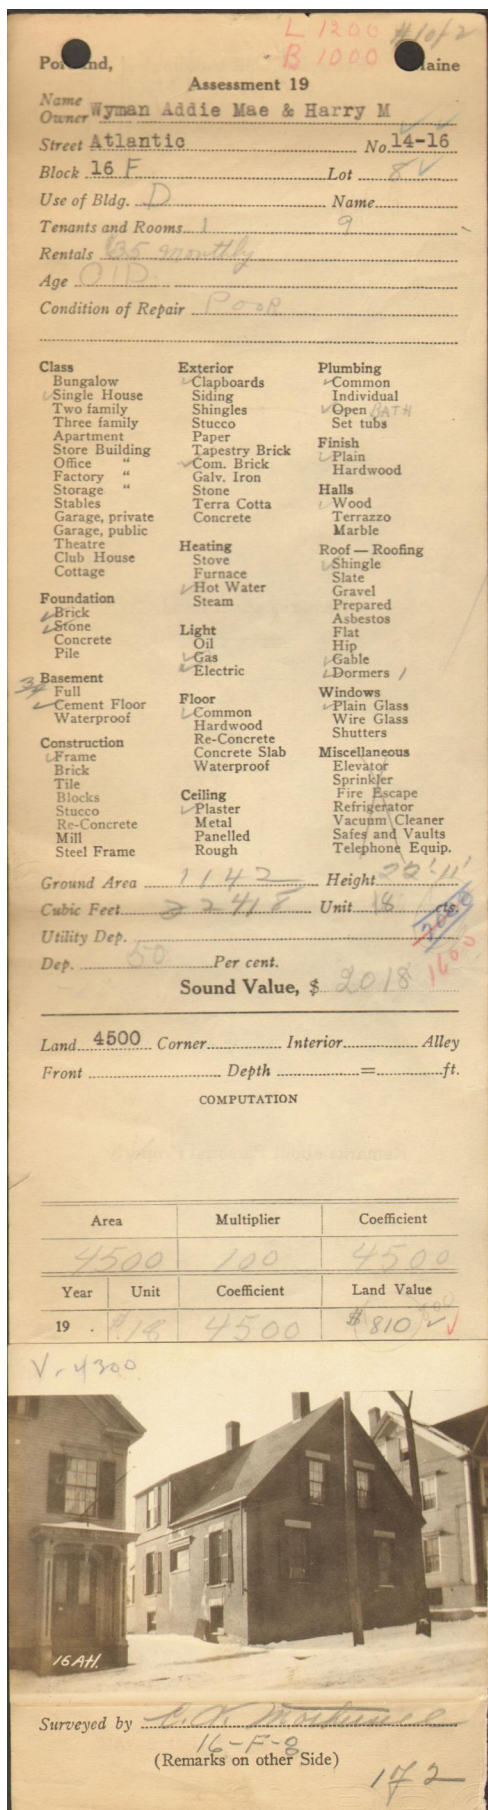 L 1200 #1 of 2
B 1000
Portland, Maine
Assessment 19
Name
Owner Wyman Addie Mae & Harry M
Street Atlantic No. 14-16
Block 16 F Lot 8
Use of Bldg. D Name
Tenants and Rooms 1 9
Rentals $35 monthly
Age OLD
Condition of Repair POOR
Class
Bungalow
Single House
Two family
Three family
Apartment
Store Building
Office "
Factory "
Storage "
Stables
Garage, private
Garage, public
Theatre
Club House
Cottage
Foundation
Brick
Stone
Concrete
Pile
Basement
3/4 Full
Cement Floor
Waterproof
Construction
Frame
Brick
Tile
Blocks
Stucco
Re-Concrete
Mill
Steel Frame
Exterior
Clapboards
Siding
Shingles
Stucco
Paper
Tapestry Brick
Com. Brick
Galv. Iron
Stone
Terra Cotta
Concrete
Heating
Stove
Furnace
Hot Water
Steam
Light
Oil
Gas
Electric
Floor
Common
Hardwood
Re-Concrete
Concrete Slab
Waterproof
Ceiling
Plaster
Metal
Panelled
Rough
Plumbing
Common
Individual
Open BATH
Set tubs
Finish
Plain
Hardwood
Halls
Wood
Terrazzo
Marble
Roof — Roofing
Shingle
Slate
Gravel
Prepared
Asbestos
Flat
Hip
Gable
Dormers 1
Windows
Plain Glass
Wire Glass
Shutters
Miscellaneous
Elevator
Sprinkler
Fire Escape
Refrigerator
Vacuum Cleaner
Safes and Vaults
Telephone Equip.
Ground Area 1142 Height 22'-11"
Cubic Feet 22418 Unit 18 cts.
Utility Dep.
Dep. 50 Per cent. 1600
Sound Value, $ 2018
Land 4500 Corner Interior Alley
Front Depth = ft.
COMPUTATION
Area Multiplier Coefficient
4500 100 4500
Year Unit Coefficient Land Value
19 . $.18 4500 $810
V-4300
16 Atl.
Surveyed by
16-F-8
(Remarks on other Side)
172